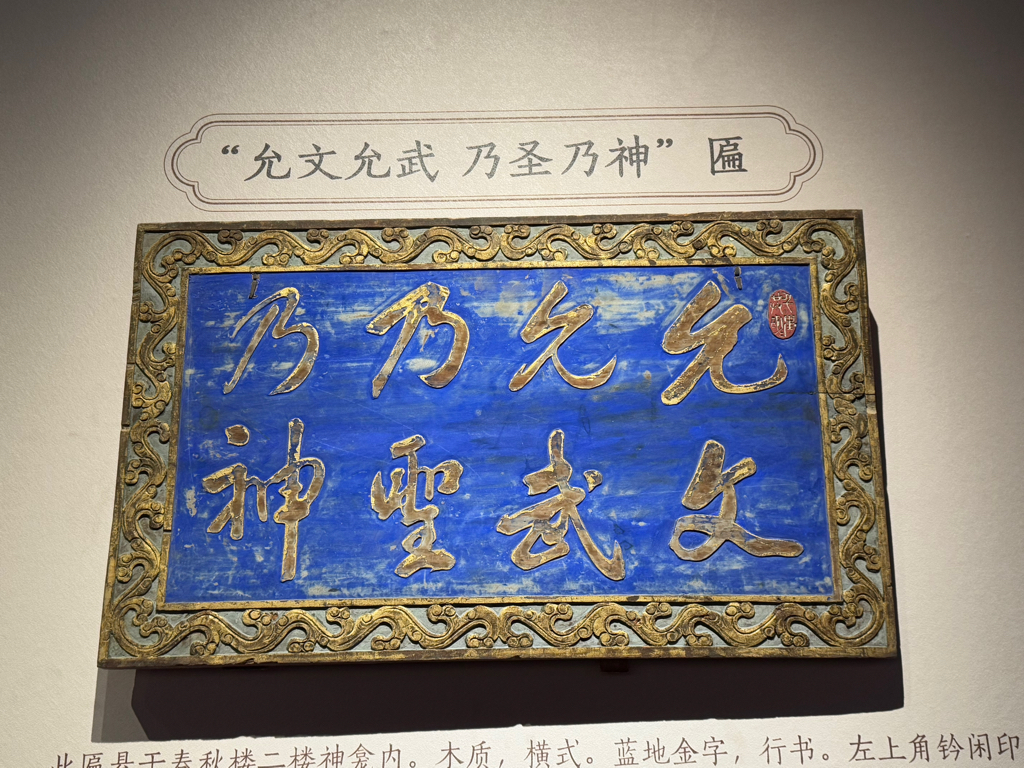 “允文允武 乃圣乃神” 匾
允文
允武
乃聖
乃神
此匾悬于春秋楼二楼神龛内。木质，横式。蓝地金字，行书。左上角钤闲印